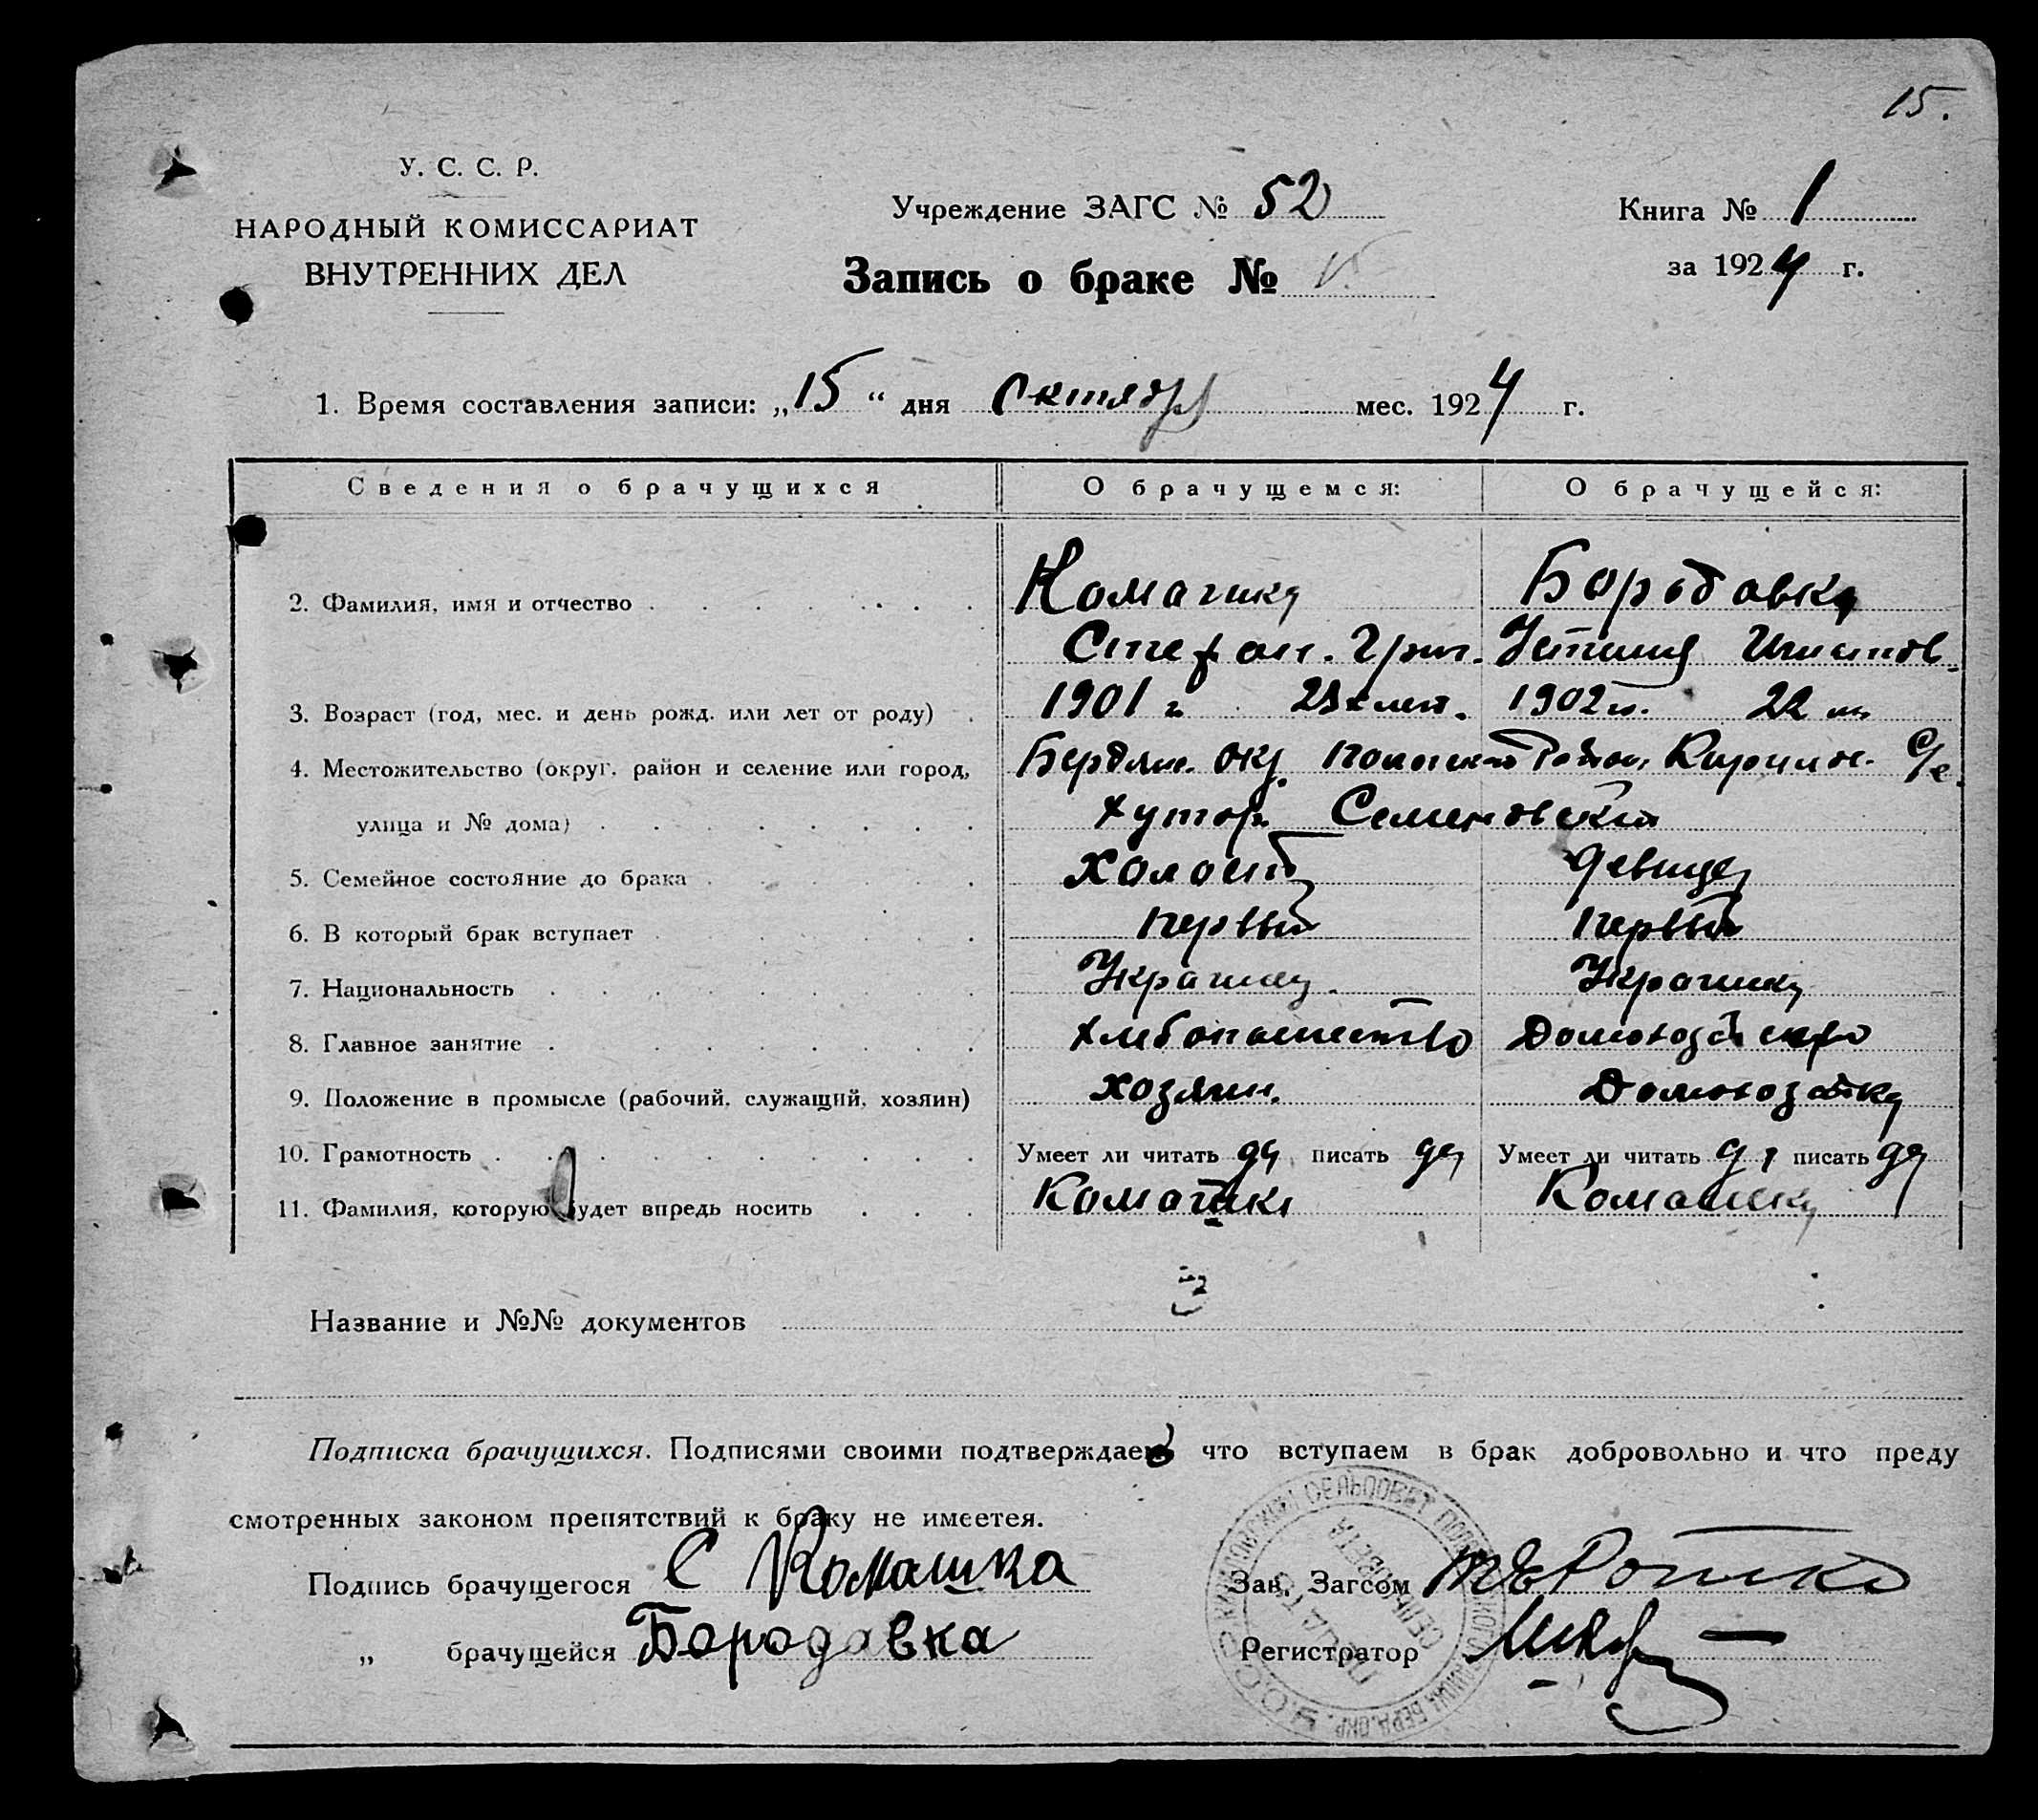 15.
У. С. С. Р.
НАРОДНЫЙ КОМИССАРИАТ
ВНУТРЕННИХ ДЕЛ
Учреждение ЗАГС № 52
Книга № 1
Запись о браке №
за 1924 г.
1. Время составления записи: „15“ дня Октября мес. 1924 г.
Сведения о брачущихся О брачущемся: О брачущейся:
2. Фамилия, имя и отчество Комашка Бородавка
Стефан. Григ. Устиния
3. Возраст (год, мес. и день рожд. или лет от роду) 1901 г. 23 лет. 1902 г. 22 л.
4. Местожительство (округ, район и селение или город, Бердян. Окр. Район, Кирилов. С/с.
улица и № дома) хутор Семеновский
5. Семейное состояние до брака Холост девица
6. В который брак вступает первый первый
7. Национальность Украинец. Украинка
8. Главное занятие хлебопашество Домохозяйство
9. Положение в промысле (рабочий, служащий, хозяин) хозяин. Домохозяйка
10. Грамотность Умеет ли читать да писать да Умеет ли читать да писать да
11. Фамилия, которую будет впредь носить Комашка Комашка
Название и №№ документов
Подписка брачущихся. Подписями своими подтверждаем что вступаем в брак добровольно и что преду
смотренных законом препятствий к браку не имеетея.
Подпись брачущегося С Комашка Зав. Загсом
„ брачущейся Бородавка Регистратор